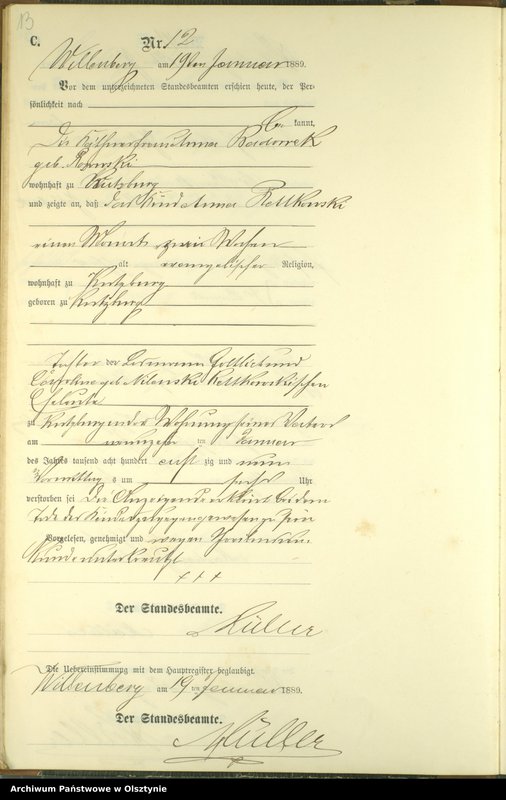 13
C.
Nr. 12
Willenberg am 19ten Januar 1889.
Vor dem unterzeichneten Standesbeamten erschien heute, der Per-
sönlichkeit nach
be kannt,
Die Käthnerfrau Anna
geb.
wohnhaft zu Kutzburg
und zeigte an, daß das Kind Anna
einen Monat zwei Wochen
alt evangelischer Religion,
wohnhaft zu Kutzburg
geboren zu Kutzburg
Tochter der Gottlieb und
geb.
Eheleute
zu Kutzburg in der Wohnung seines Vaters
am neunzehn ten Januar
des Jahres tausend acht hundert acht zig und neun
Vormittag s um sechs Uhr
verstorben sei Die Anzeigende erklärt bei dem
Tode des Kindes zugegen gewesen zu sein
Vorgelesen, genehmigt und wegen Schreibensun-
kunde unterkreuzt
+++
Der Standesbeamte.
Müller
Die Uebereinstimmung mit dem Hauptregister beglaubigt.
Willenberg am 19 ten Januar 1889.
Der Standesbeamte.
Müller
Archiwum Państwowe w Olsztynie